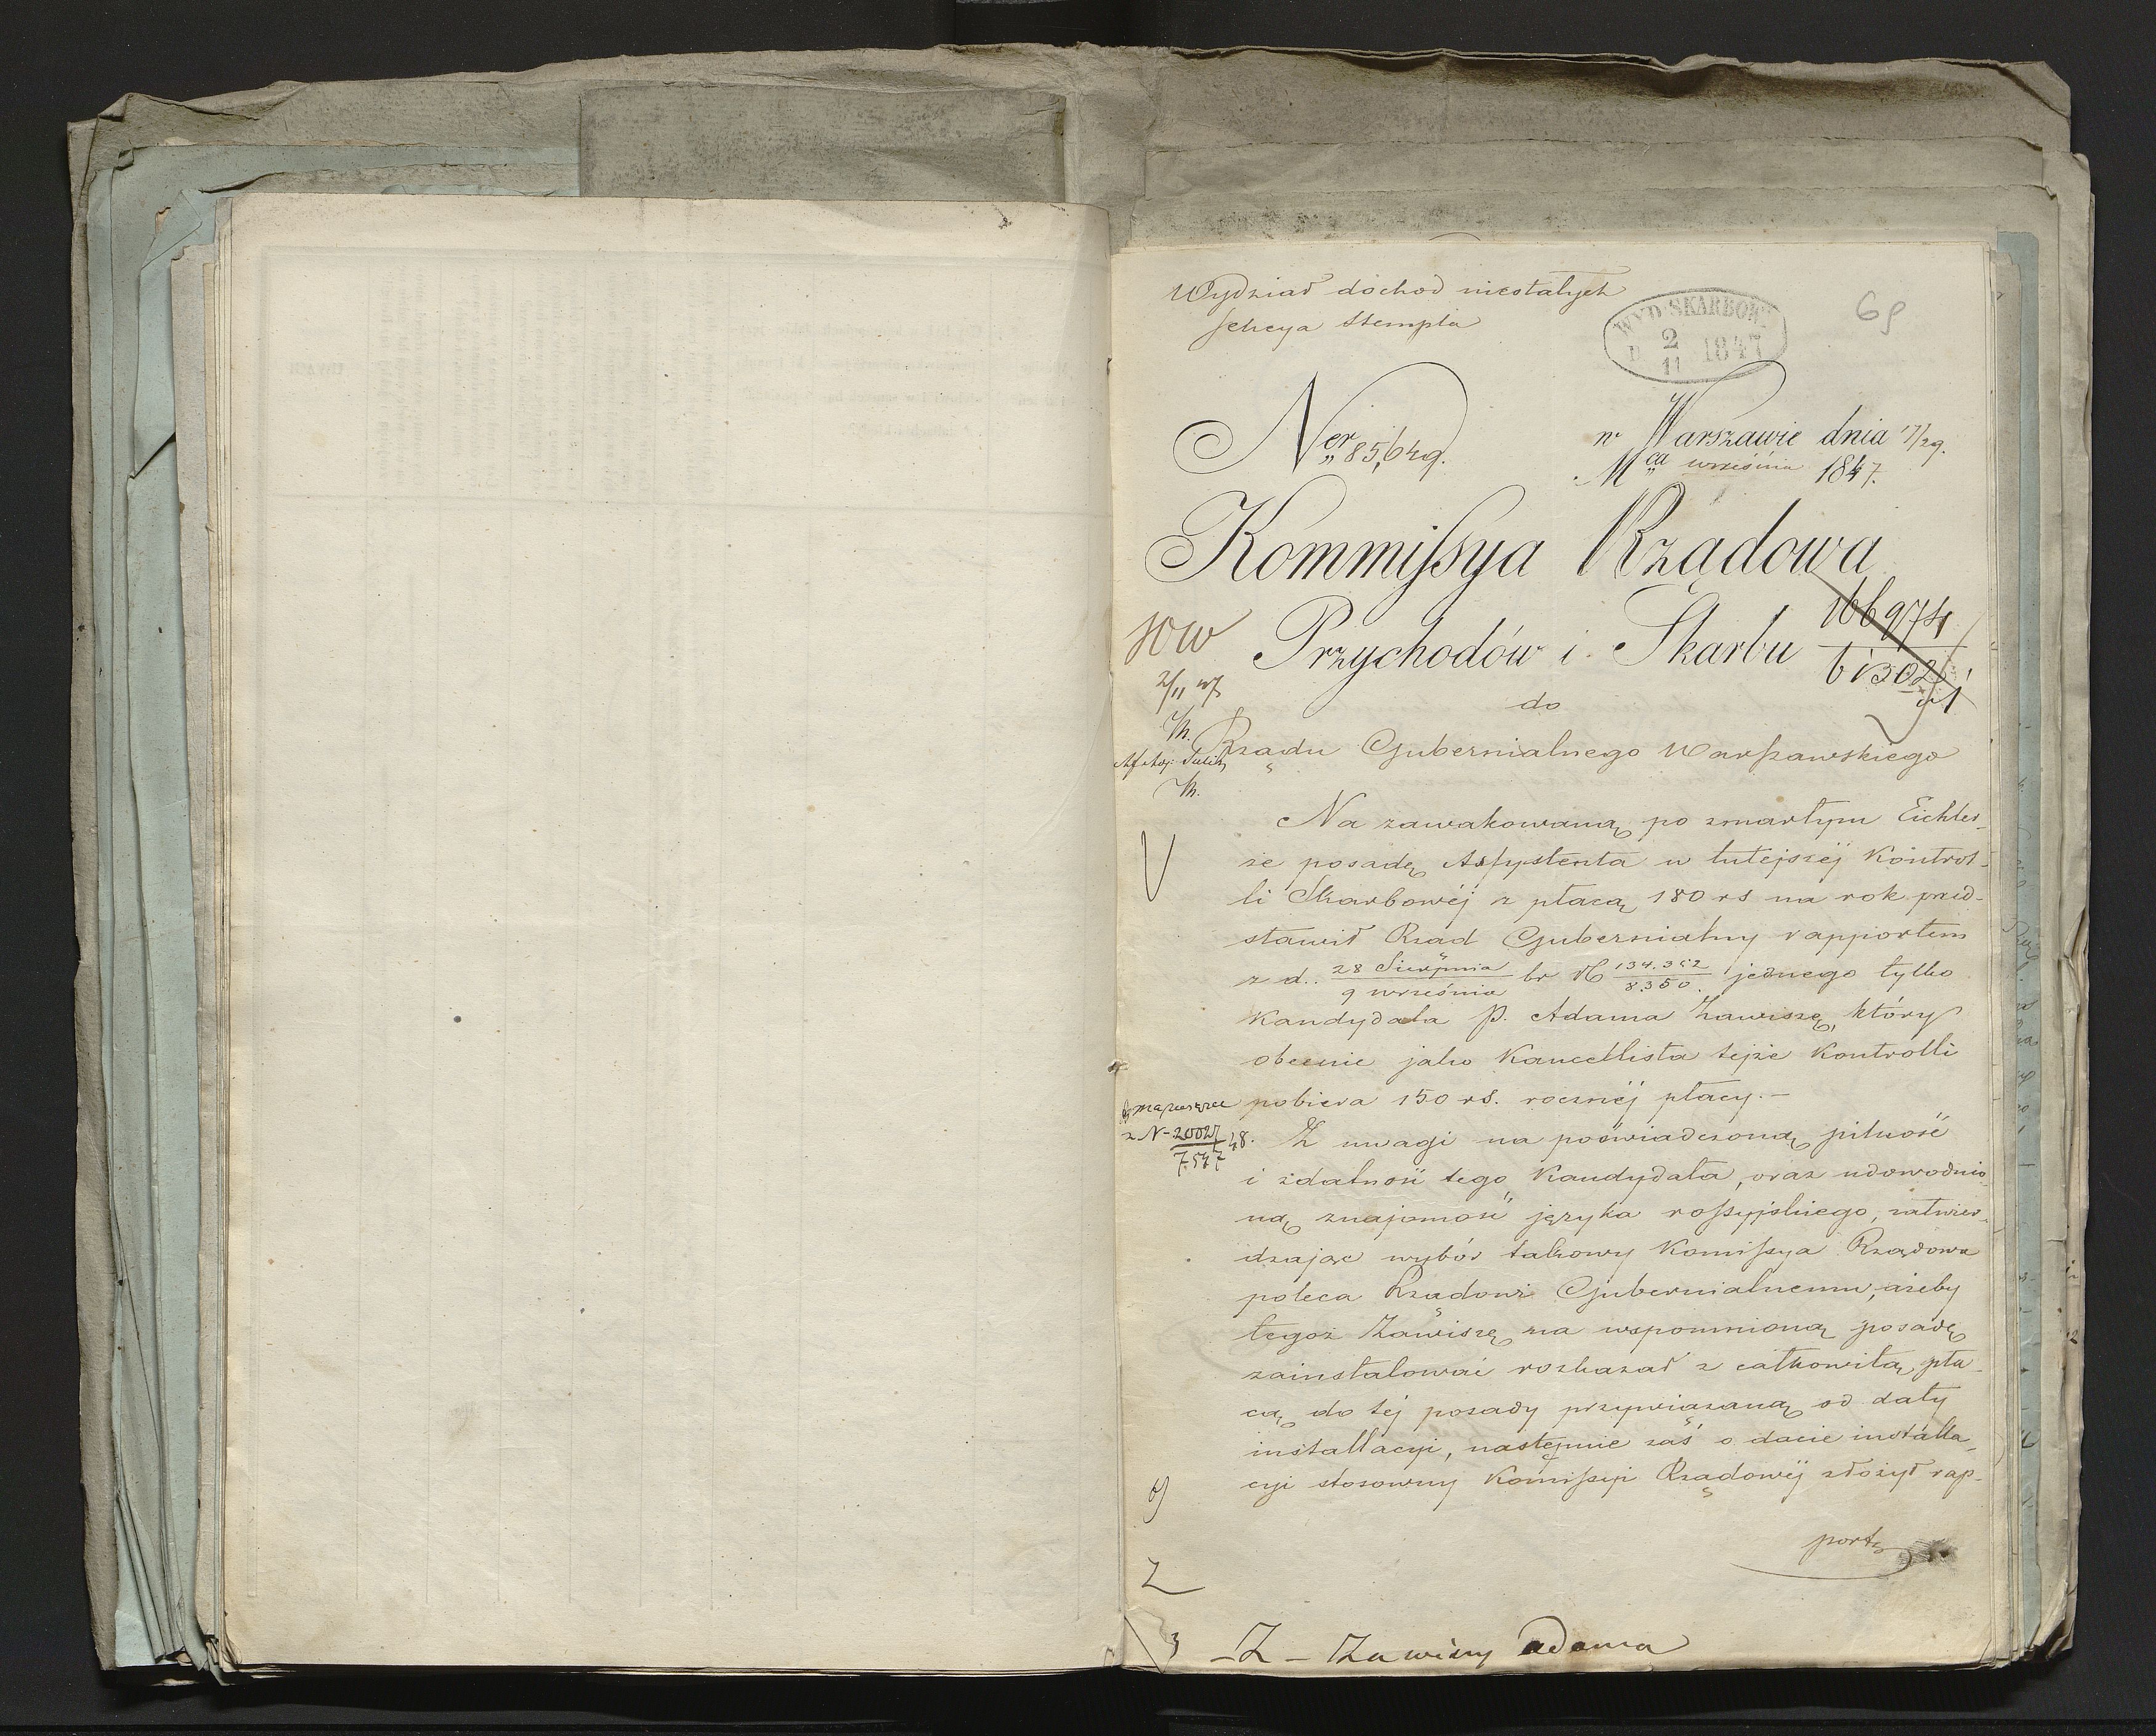 Wydział dochod niestałych
Sekcya Stempla
WYD. SKARBOW.
D 2/11 1847
69
Ner 85,649.
w Warszawie dnia 17/29.
Mca września 1847.
Kommissya Rządowa
Przychodów i Skarbu
166974
do
Rządu Gubernialnego Warszawskiego
2/11 47
Na zawakowaną po zmarłym Eichler-
ze posadę Assystenta w tutejszéj Kontrol-
li Skarbowéj z płacą 180 rs na rok przed-
stawił Rząd Gubernialny rapportem
z d. 28 Sierpnia / 9 września br N 134.352 / 8350. jednego tylko
Kandydata P. Adama Zawiszę, który
obecnie jako Kancellista tejże Kontrolli
pobiera 150 rs. rocznéj płacy.—
z N- 20027 / 7547 48.
Z uwagi na poświadczoną pilność
i zdatność tego Kandydata, oraz udowodnio-
ną znajomość języka rossyjskiego, zatwier-
dzając wybór takowy Komissya Rządowa
poleca Rządowi Gubernialnemu, ażeby
tegoż Zawiszę na wspomnioną posadę
zainstalować rozkazał z całkowitą pła-
cą do téj posady przywiązaną od daty
installacyi, następnie zaś o dacie installa-
cyi stosowny Komissyi Rządowéj złożył rap-
port
-Z- Zawiszy Adama